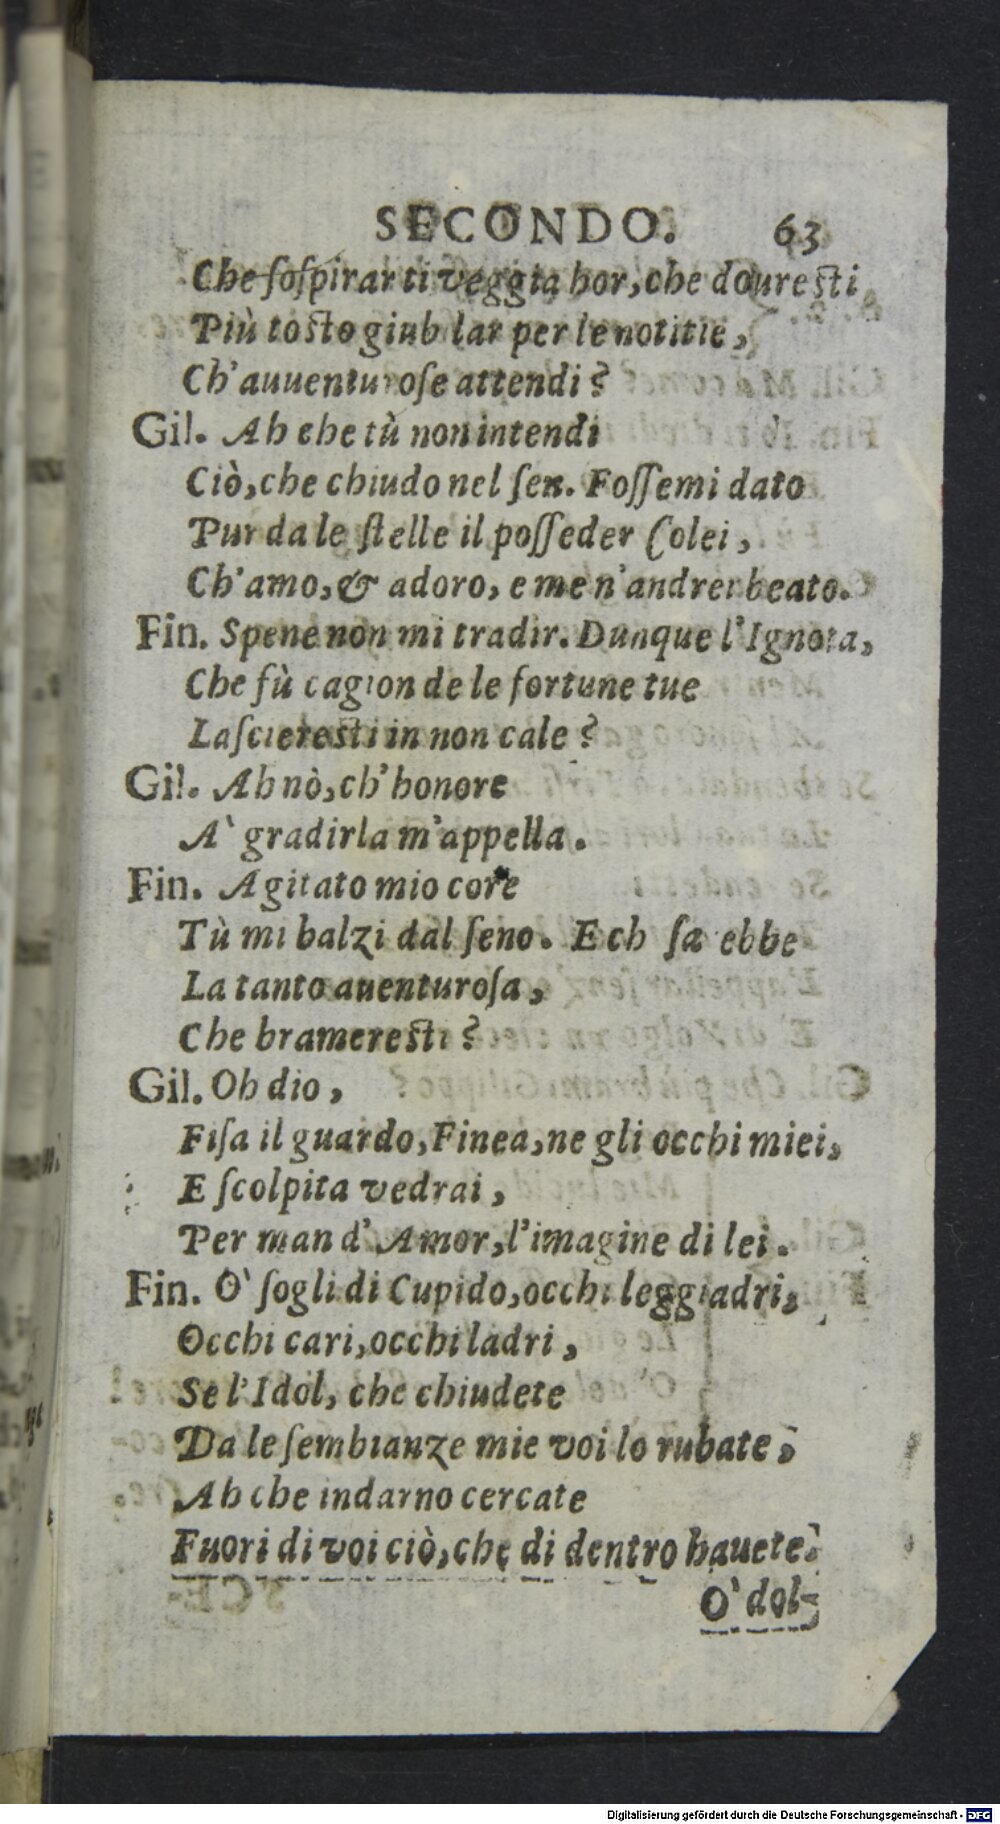 SECONDO. 63
Che ſoſpirar ti veggia hor, che doureſti
Più toſto giub lar per le notitie,
Ch'auuenturoſe attendi?
Gil. Ah che tù non intendi
Ciò, che chiudo nel ſen. Foſſemi dato
Pur da le ſtelle il poſſeder Colei,
Ch'amo, & adoro, e me n'andrei beato.
Fin. Spene non mi tradir. Dunque l'Ignota,
Che fù cagion de le fortune tue
Laſciereſti in non cale?
Gil. Ah nò, ch'honore
A' gradirla m'appella.
Fin. Agitato mio core
Tù mi balzi dal ſeno. E ch ſa ebbe
La tanto auenturoſa,
Che brameresti?
Gil. Oh dio,
Fiſa il guardo, Finea, ne gli occhi miei,
E ſcolpita vedrai,
Per man d'Amor, l'imagine di lei.
Fin. O' ſogli di Cupido, occhi leggiadri,
Occhi cari, occhi ladri,
Se l'Idol, che chiudete
Da le ſembianze mie voi lo rubate,
Ah che indarno cercate
Fuori di voi ciò, che di dentro hauete.
O' dol-
Digitalisierung gefördert durch die Deutsche Forschungsgemeinschaft - DFG